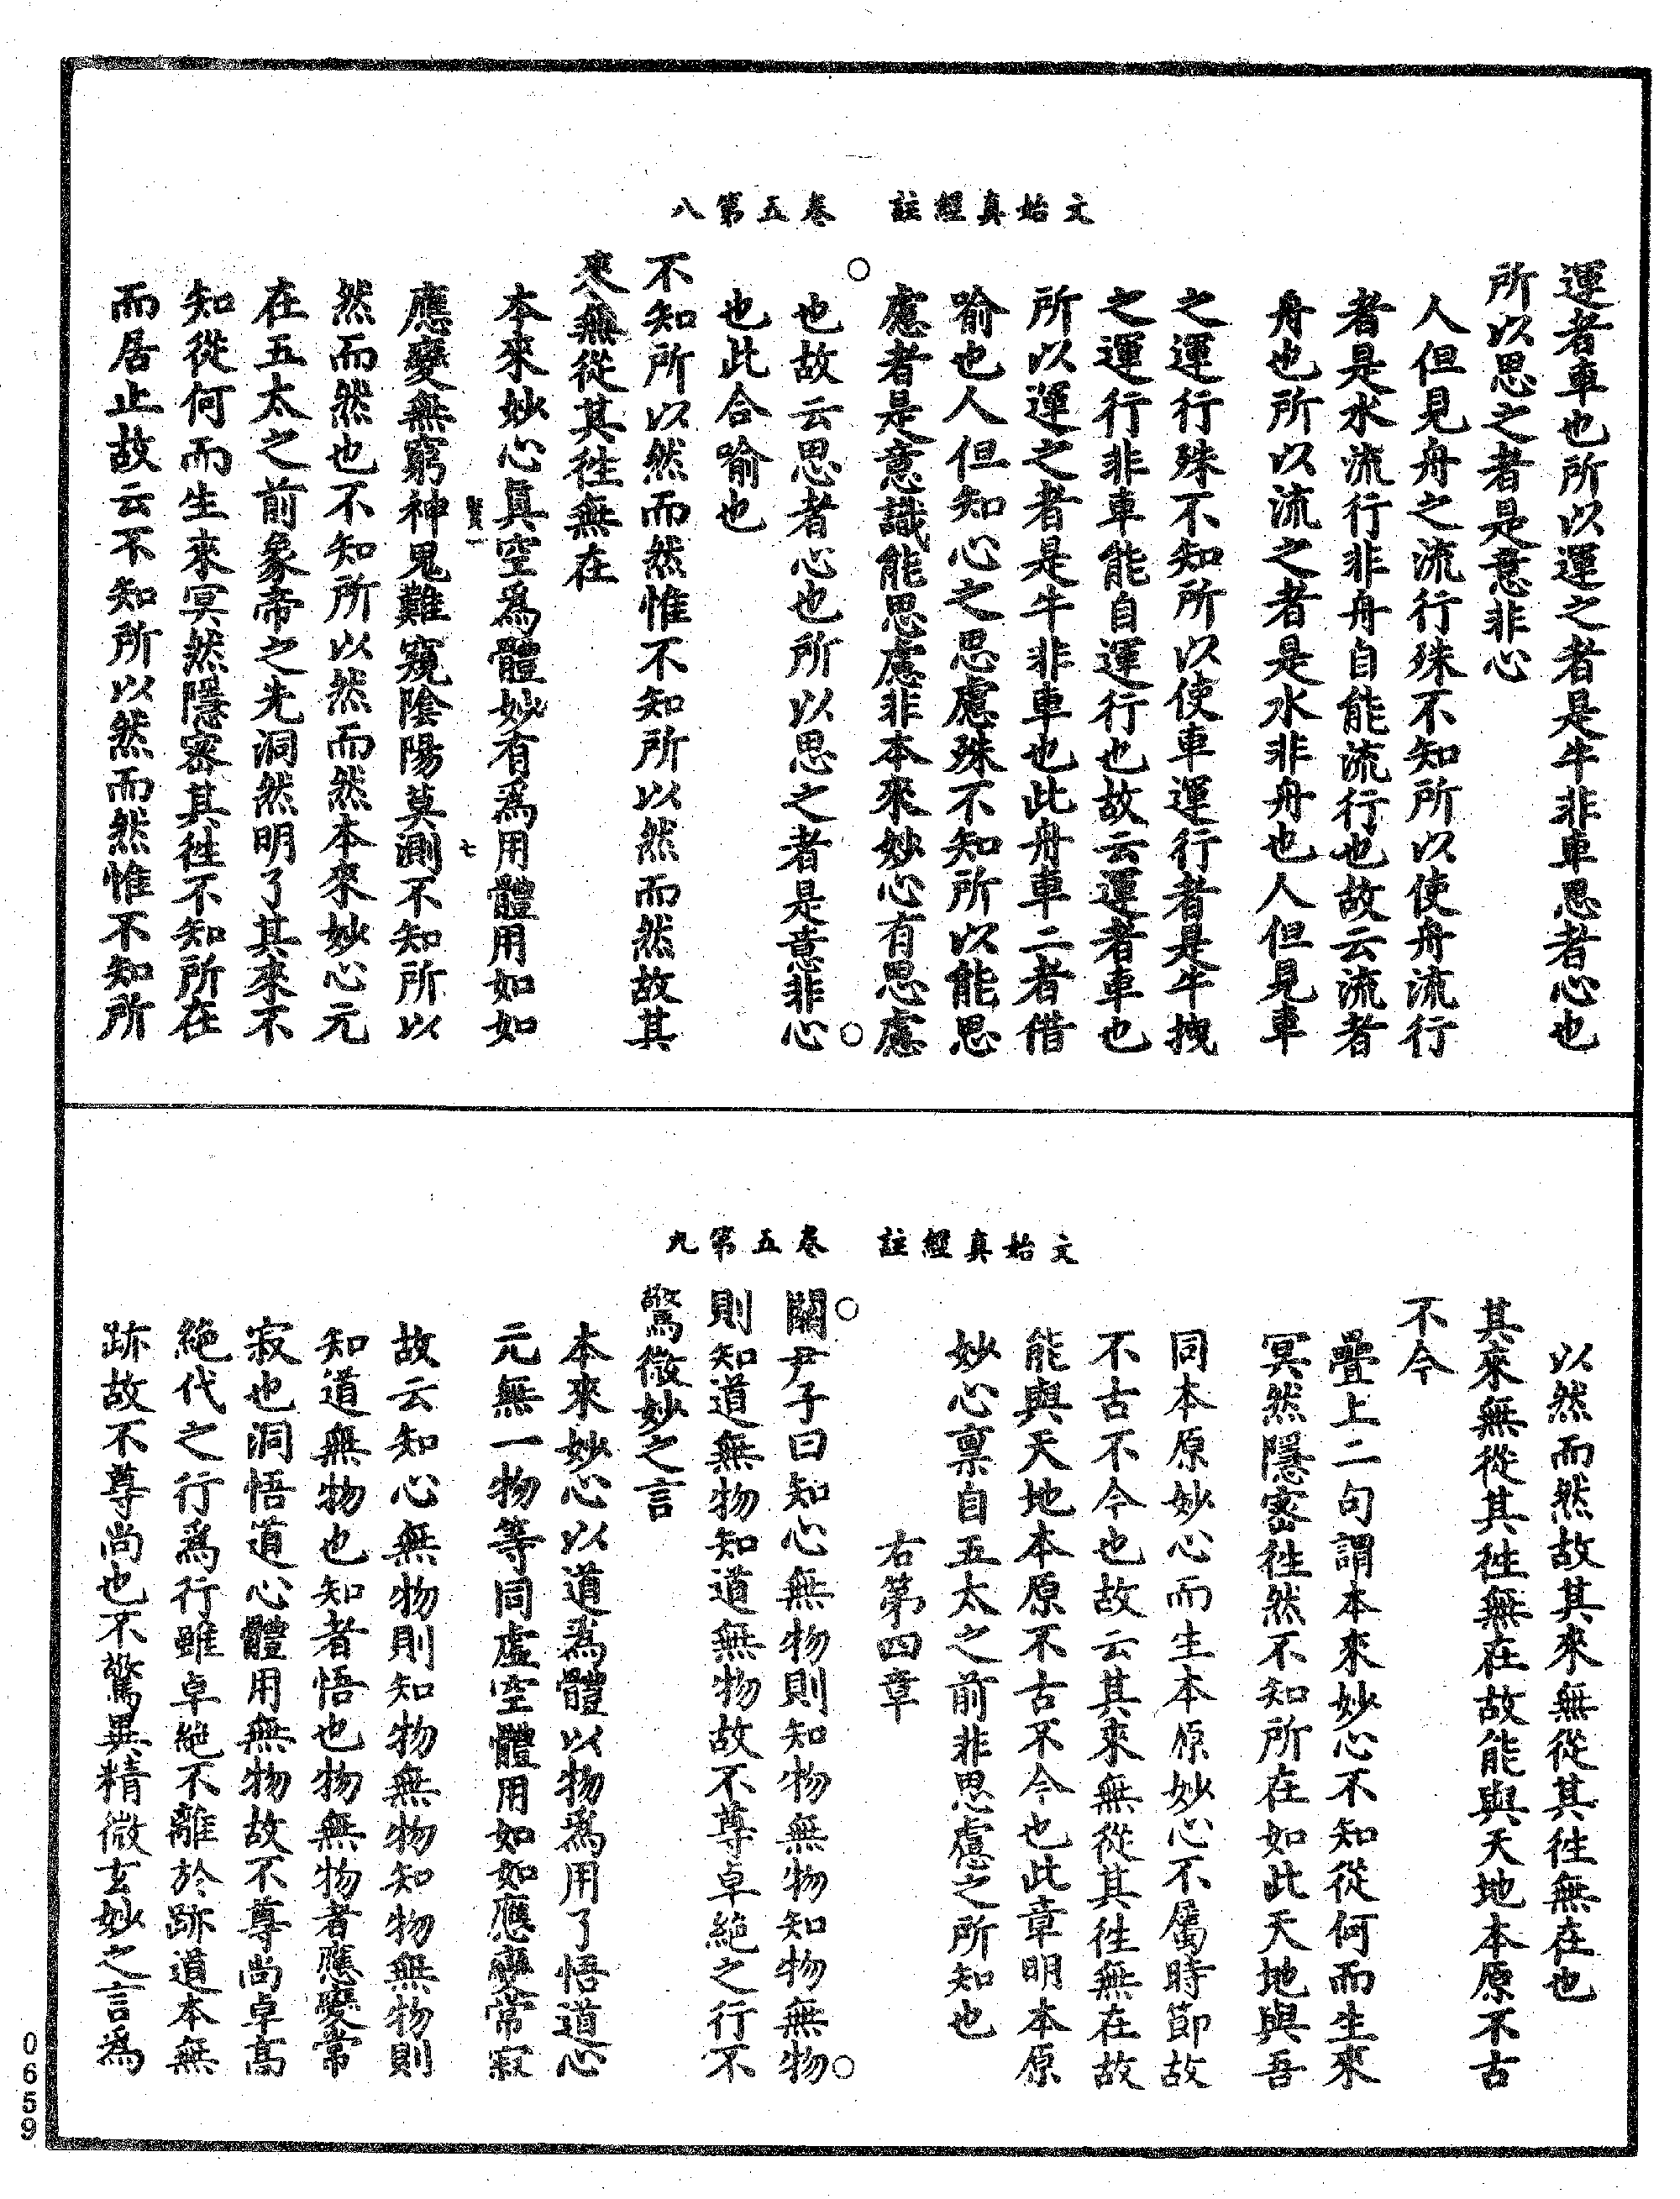 文始真經註　卷五第八
運者車也所以運之者是牛非車思者心也
所以思之者是意非心
人但見舟之流行殊不知所以使舟流行
者是水流行非舟自能流行也故云流者
舟也所以流之者是水非舟也人但見車
之運行殊不知所以使車運行者是牛拽
之運行非車能自運行也故云運者車也
所以運之者是牛非車也此舟車二者借
喻也人但知心之思慮殊不知所以能思
慮者是意識能思慮非本來妙心有思慮
也故云思者心也所以思之者是意非心
也此合喻也
不知所以然而然惟不知所以然而然故其
來無從其往無在
本來妙心真空為體妙有為用體用如如
應變無窮神鬼難窺陰陽莫測不知所以
然而然也不知所以然而然本來妙心元
在五太之前象帝之先洞然明了其來不
知從何而生來冥然隱密其往不知所在
而居止故云不知所以然而然惟不知所
文始真經註　卷五第九
以然而然故其來無從其往無在也
其來無從其往無在故能與天地本原不古
不今
疊上二句謂本來妙心不知從何而生來
冥然隱密往然不知所在如此天地與吾
同本原妙心而生本原妙心不屬時節故
不古不今也故云其來無從其往無在故
能與天地本原不古不今也此章明本原
妙心稟自五太之前非思慮之所知也
右第四章
關尹子曰知心無物則知物無物知物無物
則知道無物知道無物故不尊卓絕之行不
驚微妙之言
本來妙心以道為體以物為用了悟道心
元無一物等同虛空體用如如應變常寂
故云知心無物則知物無物知物無物則
知道無物也知者悟也物無物者應變常
寂也洞悟道心體用無物故不尊尚卓高
絕代之行為行雖卓絕不離於跡道本無
跡故不尊尚也不驚異精微玄妙之言為
0659